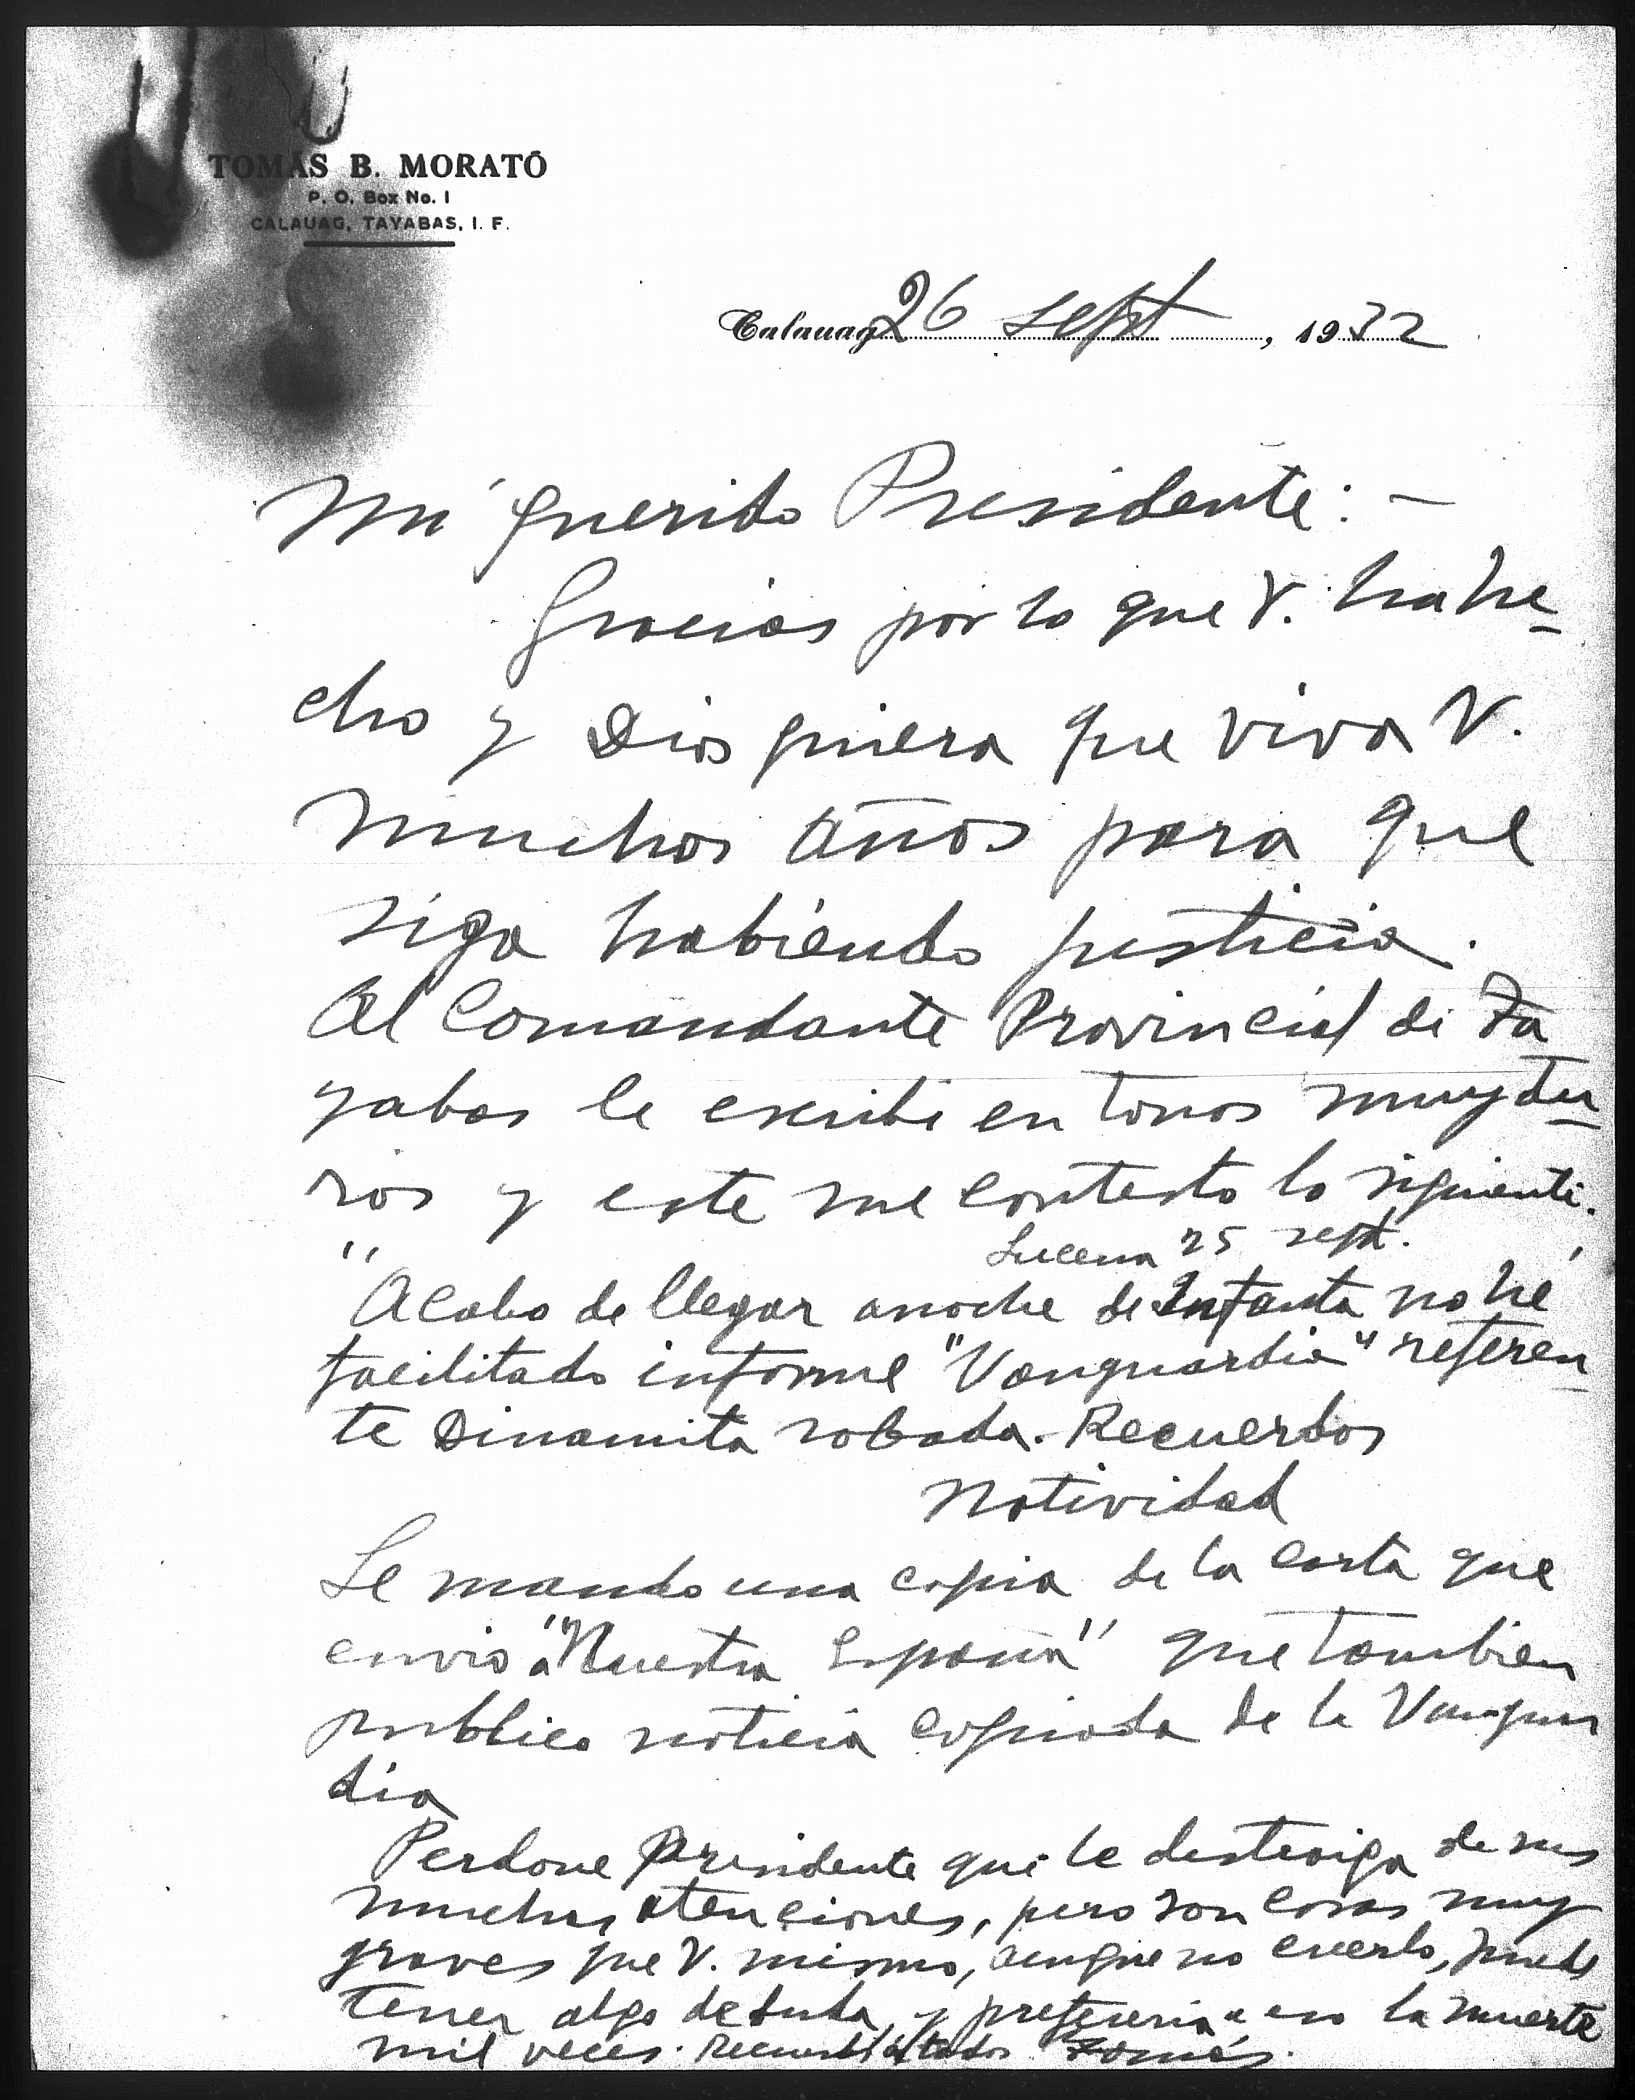 TOMAS B. MORATÓ
P. O. Box No. 1
CALAUAG, TAYABAS, I. F.
Calauag 26 sept, 1932
Mi querido Presidente: —
Gracias por lo que V. ha he-
cho y Dios quiera que viva V.
muchos años para que
siga habiendo justicia.
Al Comandante Provincial de Ta
yabas le escribi en tonos muy du-
ros y este me contesto lo siguiente.
Lucena 25 sept.
"Acabo de llegar anoche de Infanta no he
facilitado informe "Vanguardia" referen-
te Dinamita robada. Recuerdos
Natividad
Le mando una copia de la carta que
envio a "Nuestra España" que tambien
publico noticia copiada de la Vanguar
dia
Perdone Presidente que le distraiga de sus
muchas atenciones, pero son cosas muy
graves que V. mismo, aunque no creerlo, puede
tener algo de duda, y preferiria a eso la muerte
mil veces. Recuerdos a todos Tomás.